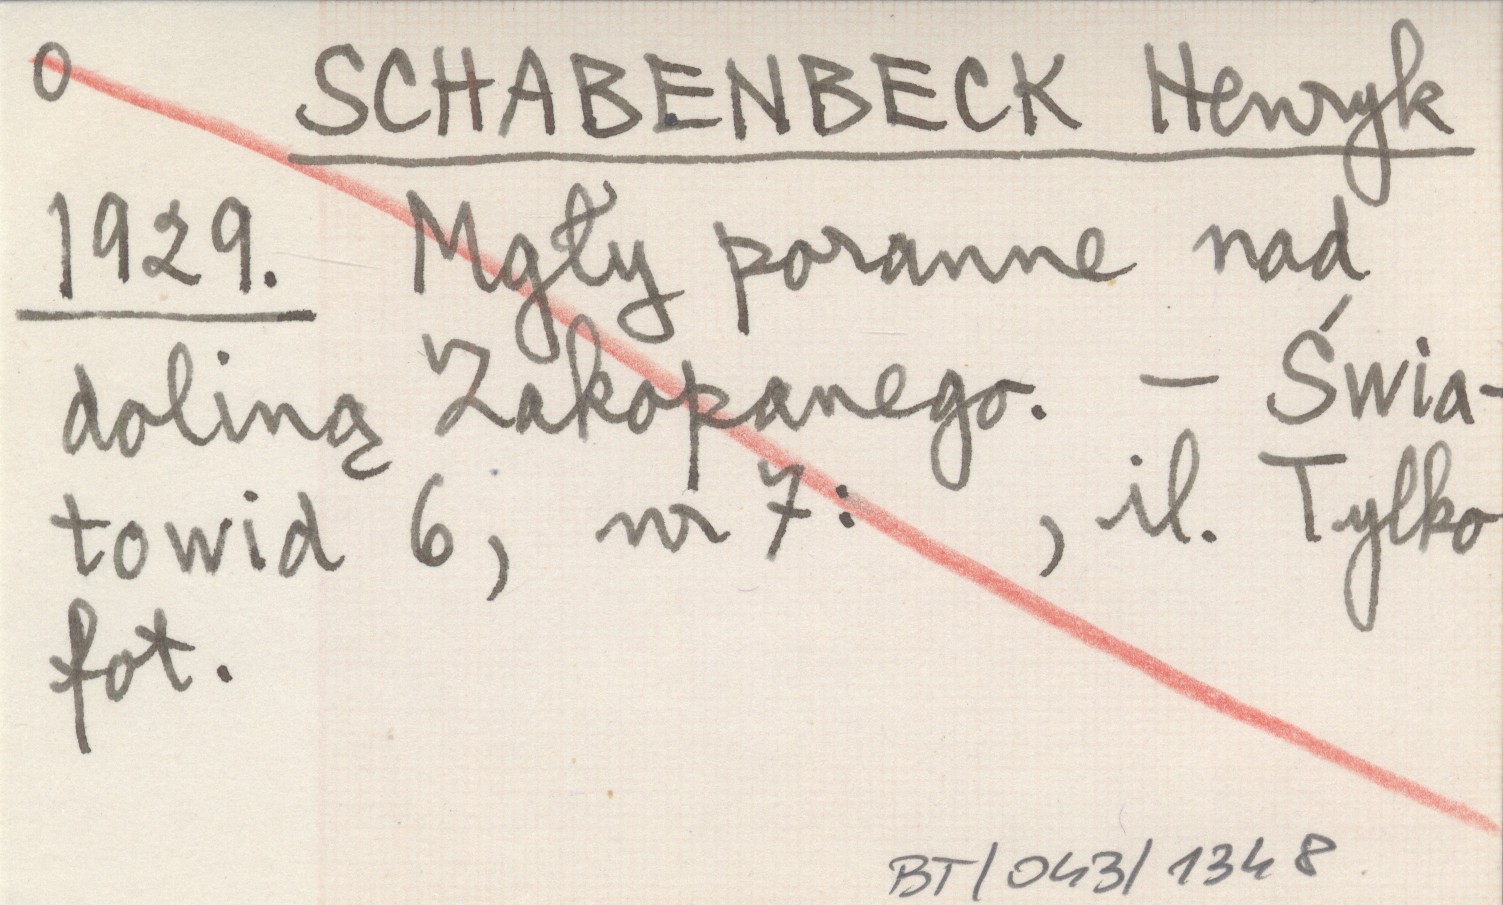 O SCHABENBECK Henryk
1929. Mgły poranne nad
doliną Zakopanego. — Świa-
towid 6, nr 7: , il. Tylko
fot.
BT/043/1348